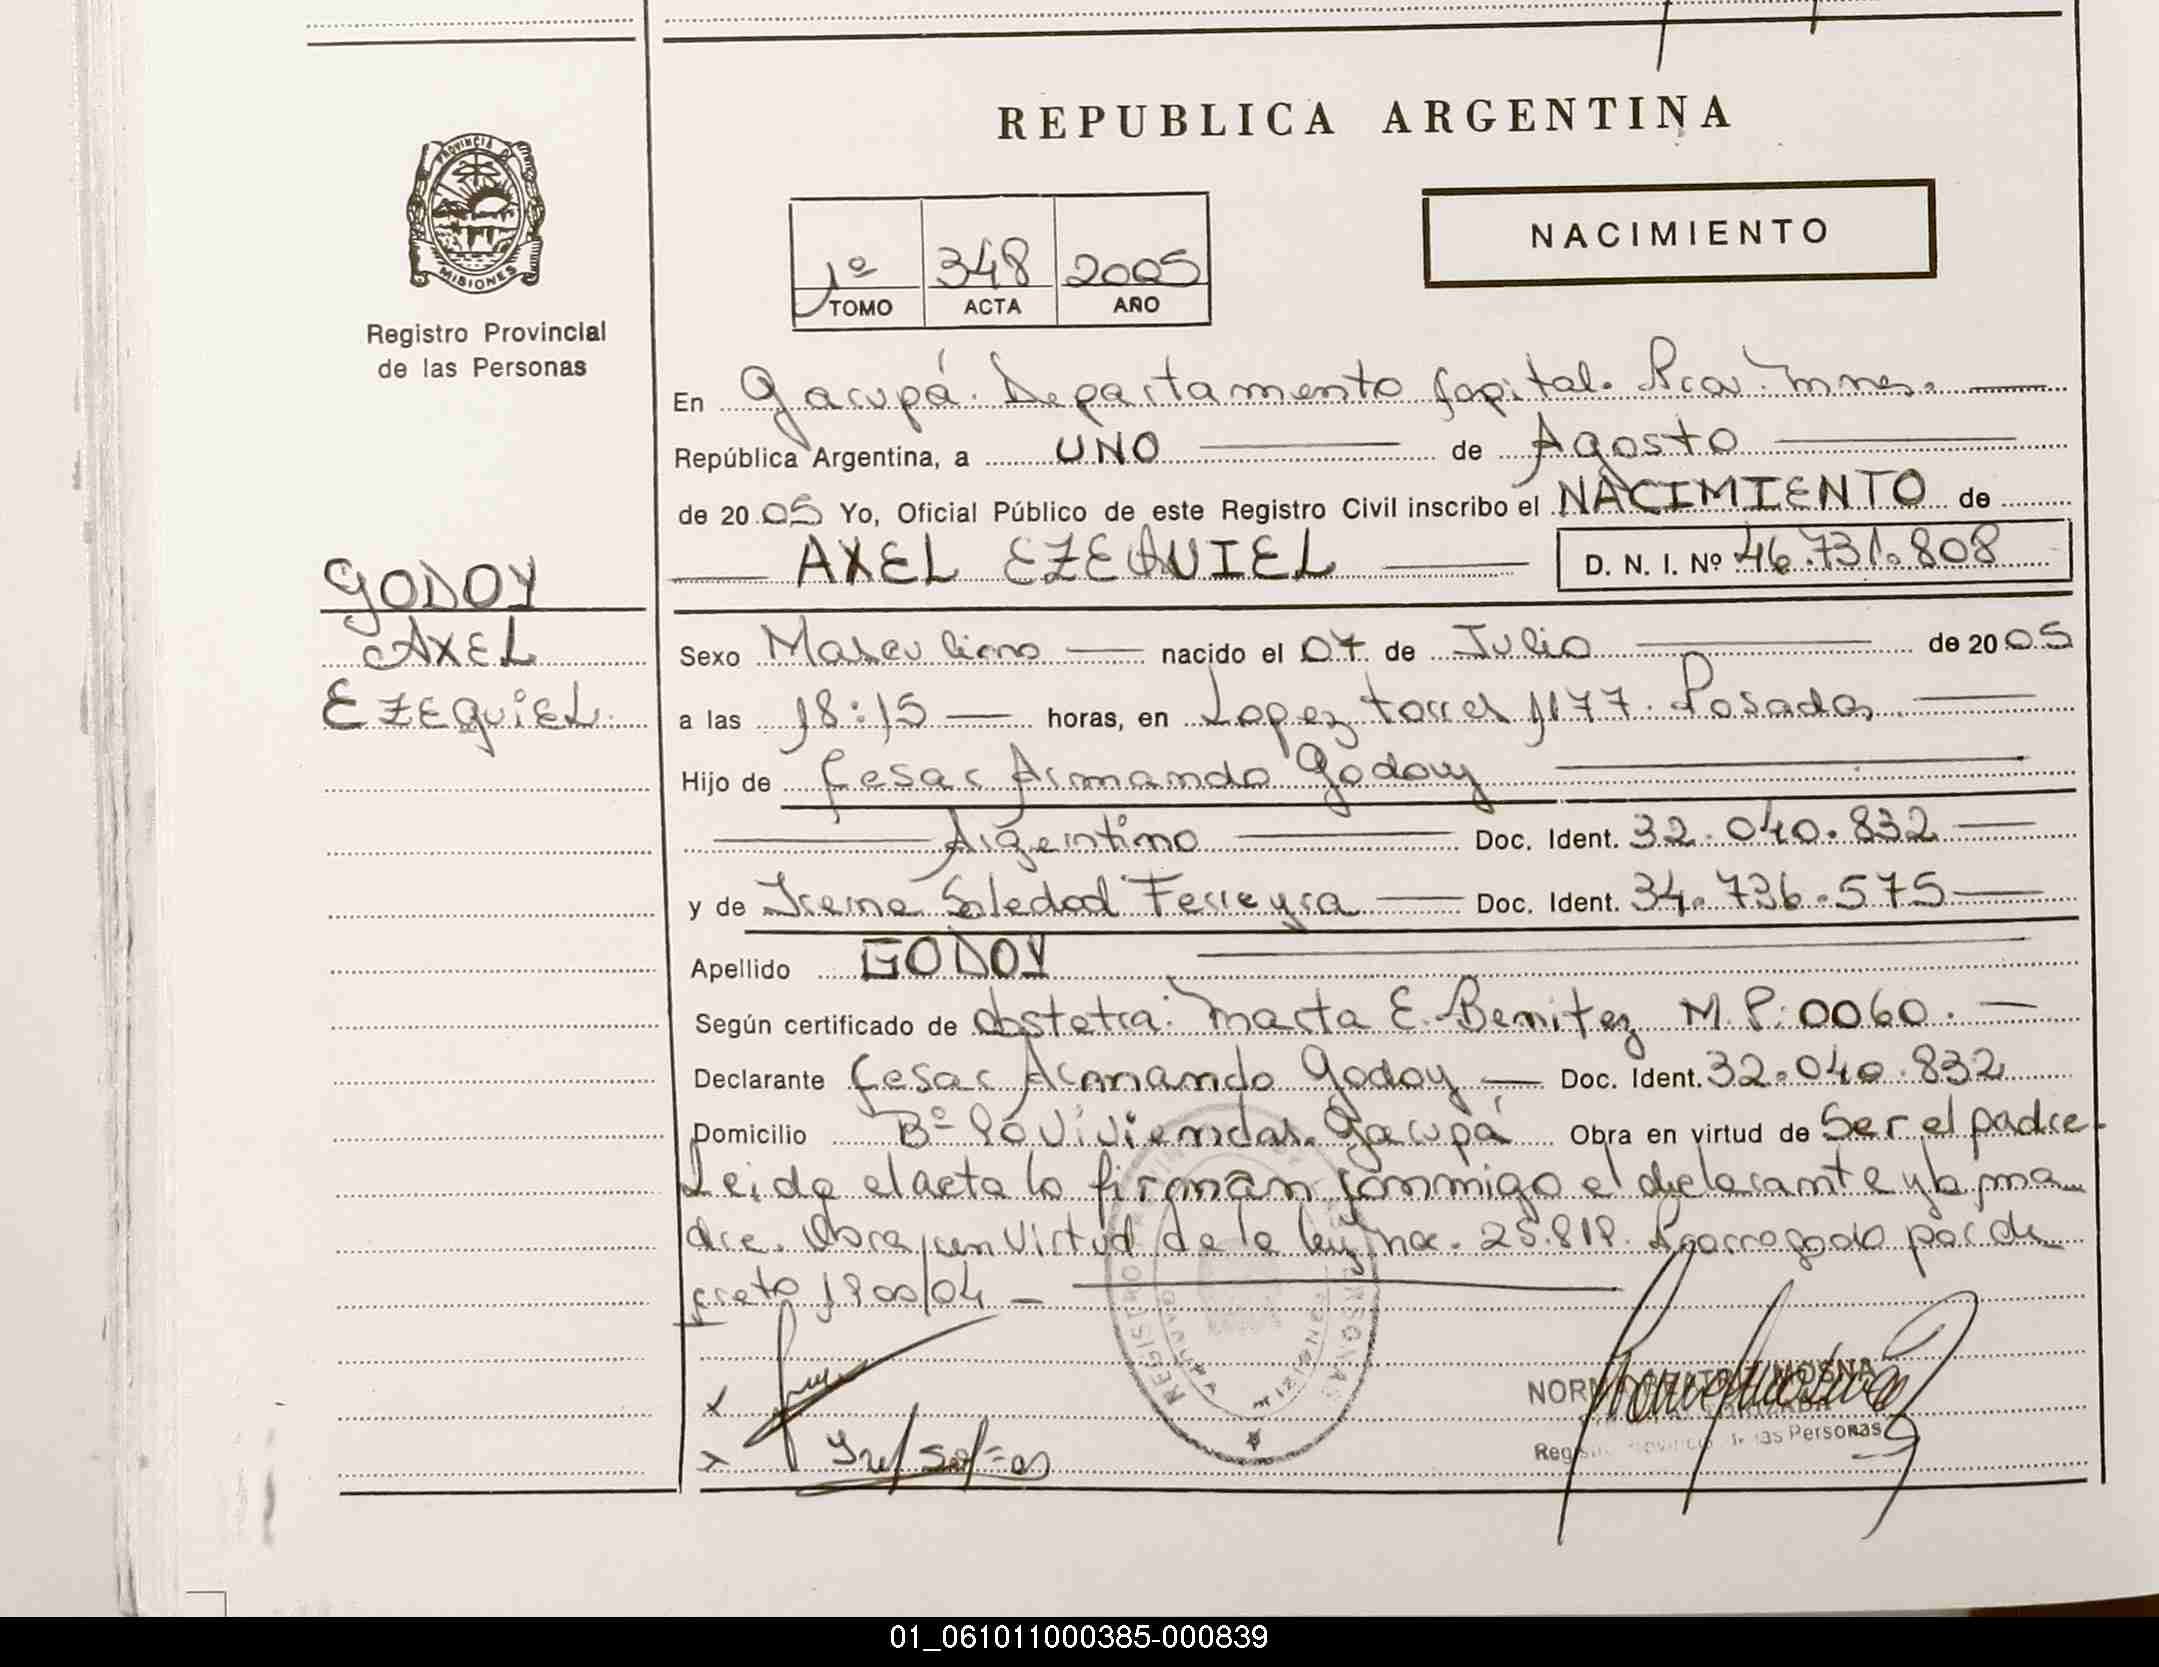 REPUBLICA ARGENTINA
PROVINCIA DE
MISIONES
Registro Provincial
de las Personas
NACIMIENTO
1º 348 2005
TOMO ACTA AÑO
En Garupá. Departamento Capital. Pcia. Mnes.
República Argentina, a UNO de Agosto
de 2005 Yo, Oficial Público de este Registro Civil inscribo el NACIMIENTO de
AXEL EZEQUIEL D. N. I. Nº 46.731.808
GODOY
AXEL
EZEQUIEL
Sexo Masculino nacido el 07 de Julio de 2005
a las 18:15 horas, en Lopez torres 1177. Posadas
Hijo de Cesar Armando Godoy
Argentino Doc. Ident. 32.040.832
y de Irene Soledad Ferreyra Doc. Ident. 34.736.575
Apellido GODOY
Según certificado de obstetra: Marta E. Benitez M.P: 0060.
Declarante Cesar Armando Godoy Doc. Ident. 32.040.832
Domicilio Bº Viviendas. Garupá Obra en virtud de Ser el padre.
Leida el acta la firman conmigo el declarante y la ma
dre. Obra en Virtud de la ley nac. 25.819. Prorrogado por de
creto 1900/04
NORMA BEATRIZ MOSNA
de las Personas
01_061011000385-000839